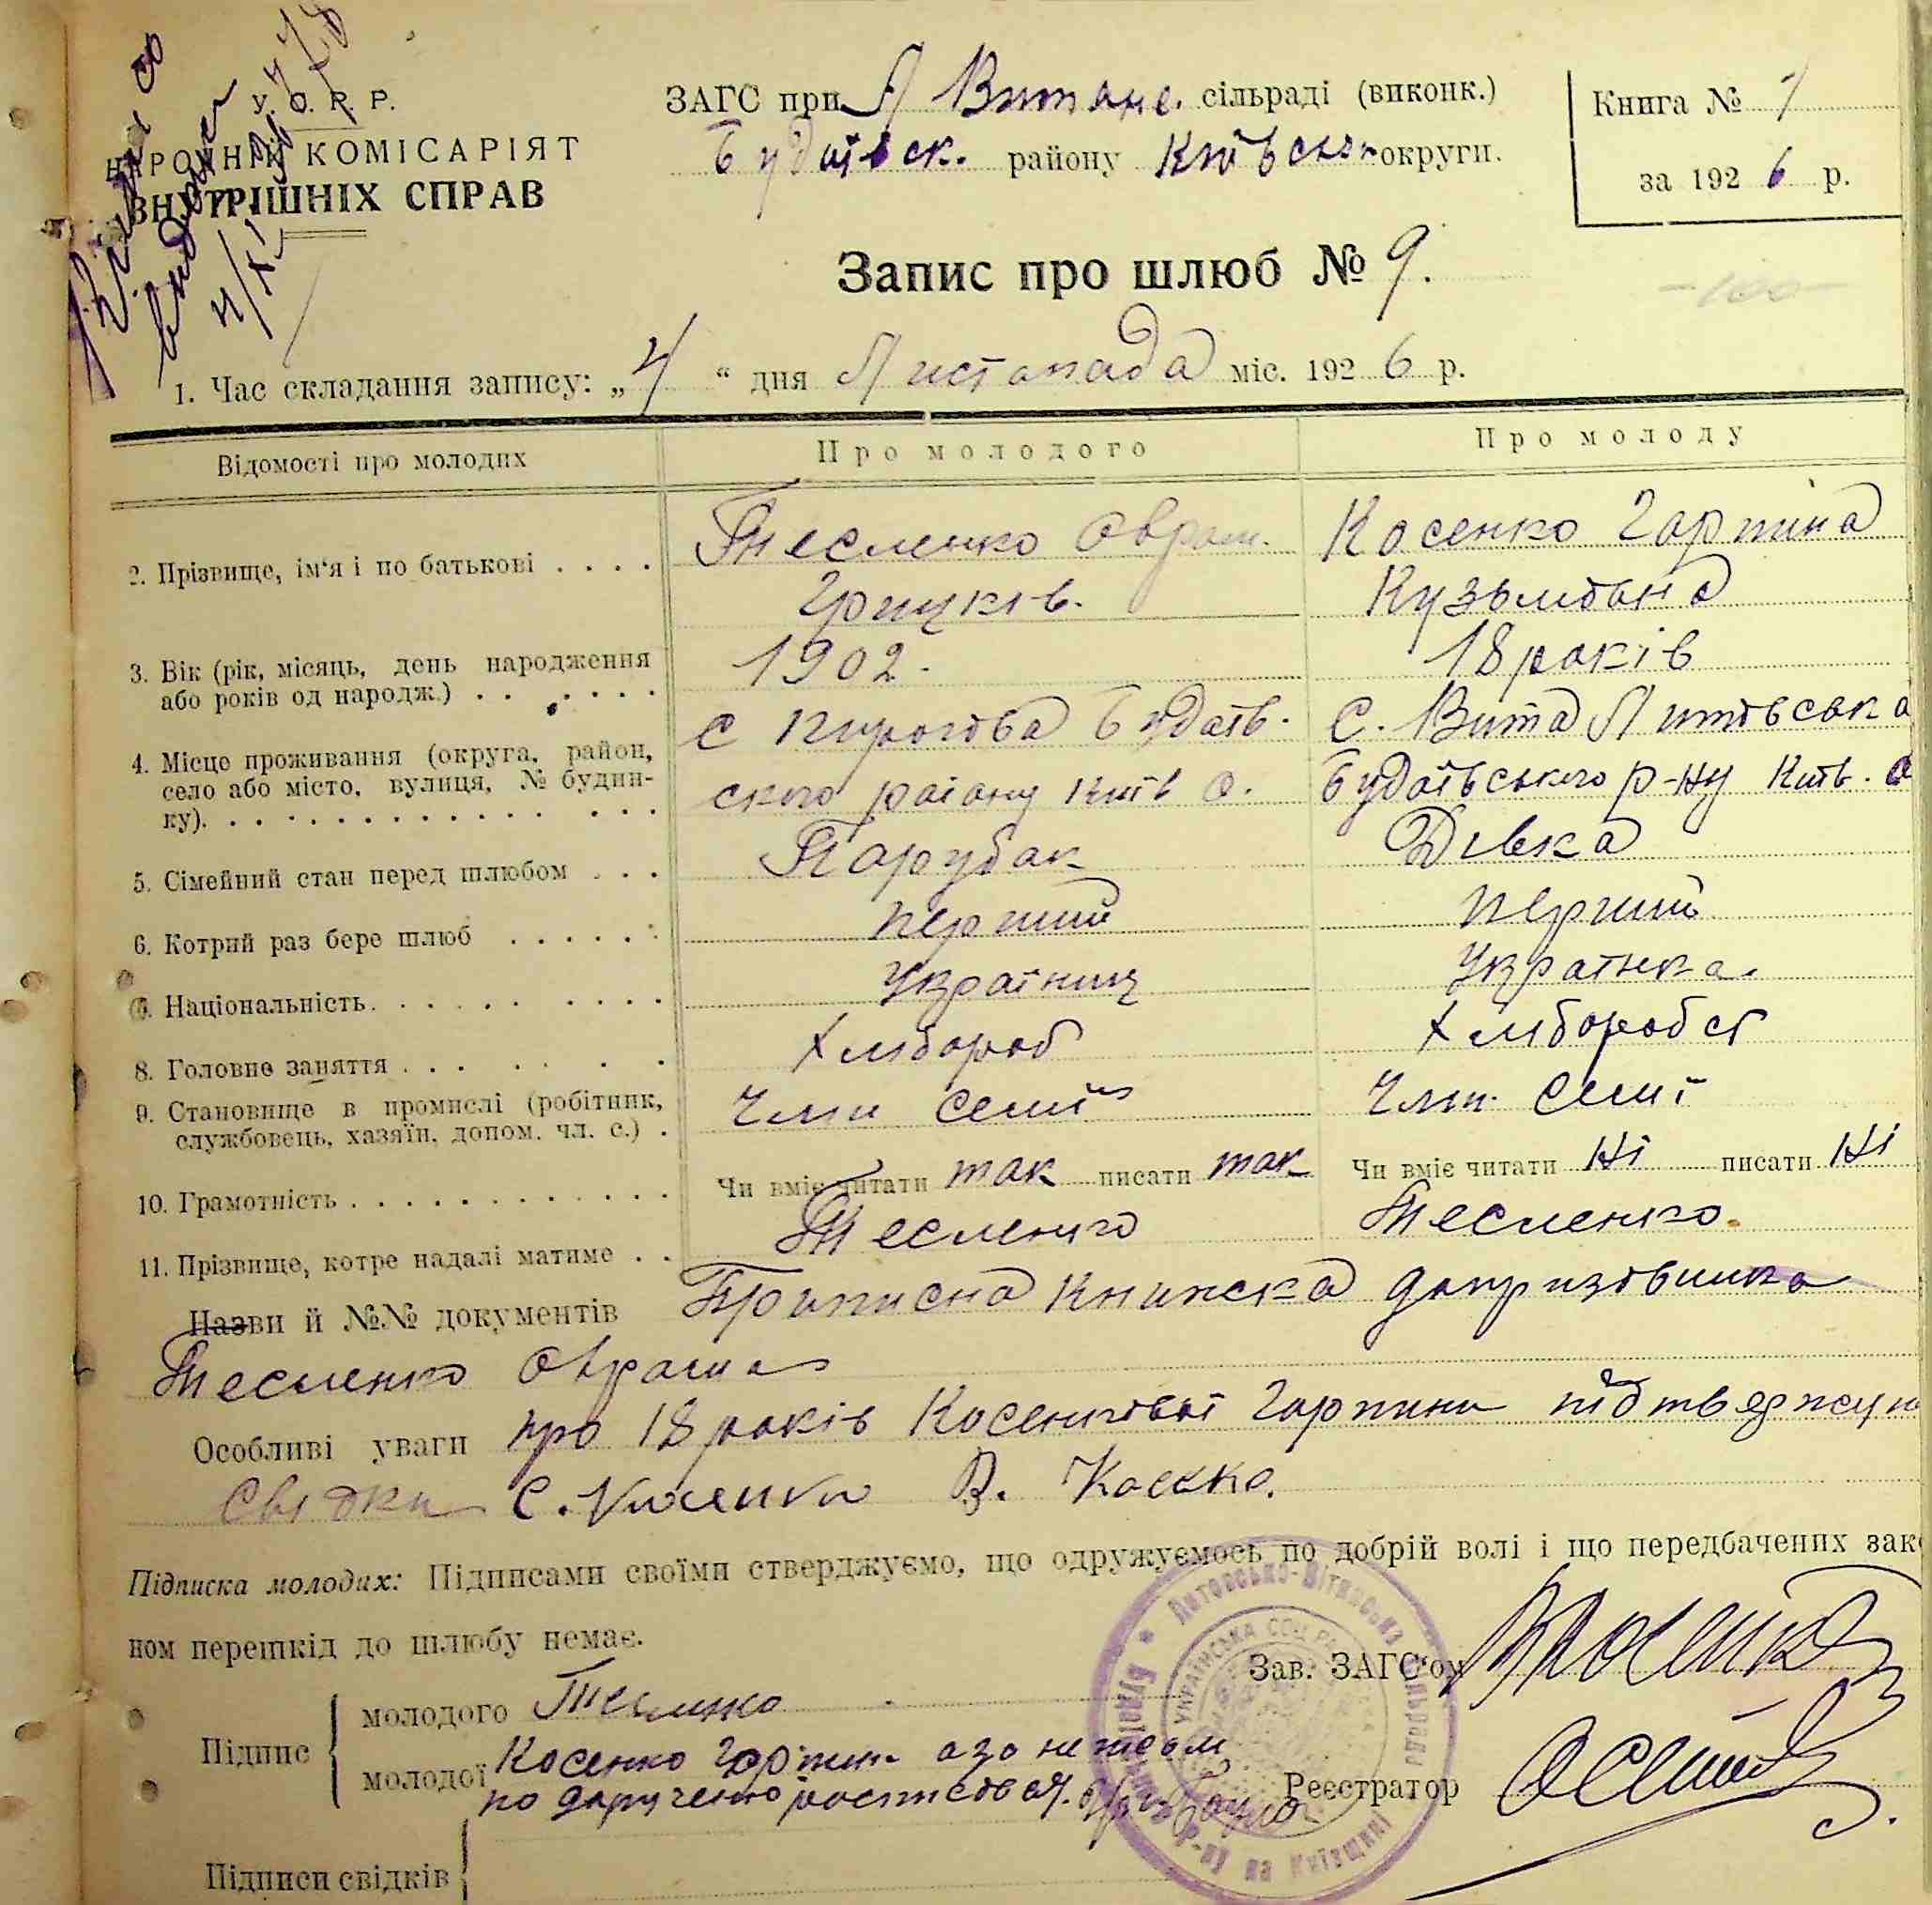 У. С. Р. Р.
НАРОДНІЙ КОМІСАРІЯТ
ВНУТРІШНІХ СПРАВ
4/XI
ЗАГС при Л Витянс. сільраді (виконк.)
Будаївск. району Київськ округи.
Книга № 1
за 1926 р.
Запис про шлюб № 9.
-100-
1. Час складання запису: „4“ дня Листопада міс. 1926 р.
Відомості про молодих Про молодого Про молоду
2. Прізвище, ім'я і по батькові . . . . Тесленко Оврам. Косенко Гарпина
Грицків. Кузьмівна
3. Вік (рік, місяць, день народження 1902. 18 років
або років од народж.) . . . . . .
4. Місце проживання (округа, район, с Пирогова Будаїв- с. Вита Литовська
село або місто, вулиця, № будин- ского району Київ о. Будаївського р-ну Київ. о
ку). . . . . . . . . . . . . . .
5. Сімейний стан перед шлюбом . . . Парубак Дівка
6. Котрий раз бере шлюб . . . . . . перший перший
Національність. . . . . . . . . Україниц Українка.
8. Головне заняття . . . . . . Хлібороб Хліборобст
9. Становище в промислі (робітник, Член семії Член. семії
службовець, хазяїн, допом. чл. с.) .
10. Грамотність . . . . . . . . . . . . Чи вміє читати так писати так Чи вміє читати Ні писати Ні
11. Прізвище, котре надалі матиме . . Тесленко Тесленко.
Назви й №№ документів Приписна книжска допризовника
Тесленко Оврама
Особливі уваги про 18 років Косенкової Гарпини підтверджую
Свідки С. В. Косенко.
Підписка молодих: Підписами своїми стверджуємо, що одружуємось по добрій волі і що передбачених зако
ном перешкід до шлюбу немає.
Зав. ЗАГС'ом
Підпис молодого Тесленко
молодої Косенко Гарпин а за неграм
по дорученю росписовся.
Реєстратор
Підписи свідків
Литовсько-Вітянська сільрада * Будаївського р-ну на Київщині
УКРАЇНСЬКА СОЦ. РАД